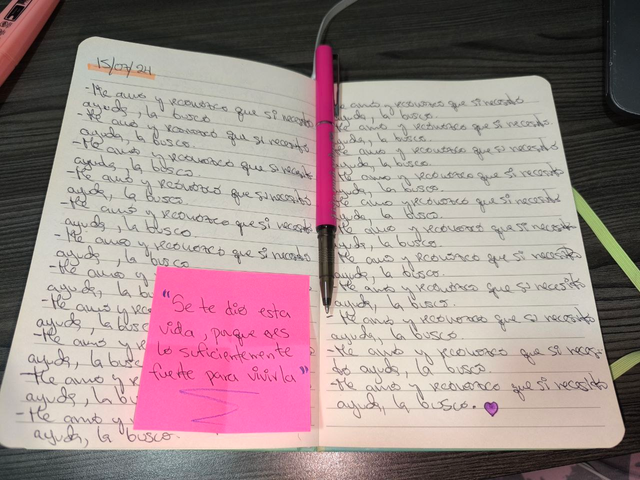 15/07/24
-Me amo y reconozco que si necesito
ayuda, la busco.
-Me amo y reconozco que si necesito
ayuda, la busco.
-Me amo y reconozco que si necesito
ayuda, la busco.
-Me amo y reconozco que si necesito
ayuda, la busco.
-Me amo y reconozco que si necesito
ayuda, la busco.
-Me amo y reconozco que si necesito
ayuda, la busco.
-Me amo y
ayuda, la
-Me amo
ayuda, la
-Me amo y
ayuda, la
-Me amo y
ayuda, la
-Me amo y
ayuda, la busco.
"Se te dio esta
vida, porque eres
lo suficientemente
fuerte para vivirla"
Me amo y reconozco que si necesito
ayuda, la busco.
Me amo y reconozco que si necesito
ayuda, la busco.
Me amo y reconozco que si necesito
ayuda, la busco.
Me amo y reconozco que si necesito
ayuda, la busco.
Me amo y reconozco que si necesito
ayuda, la busco.
Me amo y reconozco que si necesito
ayuda, la busco.
Me amo y reconozco que si necesito
ayuda, la busco.
-Me amo y reconozco que si necesito
ayuda, la busco.
-Me amo y reconozco que si necesito
ayuda, la busco.
-Me amo y reconozco que si necesi-
to ayuda, la busco.
-Me amo y reconozco que si necesito
ayuda, la busco.